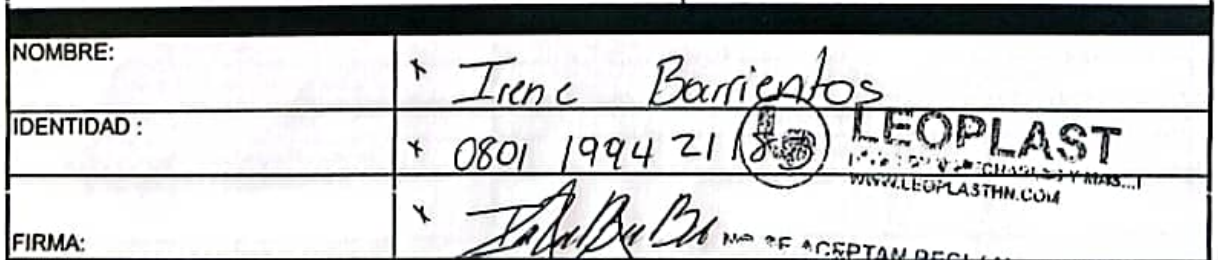 NOMBRE: x Irene Barrientos
IDENTIDAD : x 0801 1994 21
LEOPLAST
Y MAS...!
WWW.LEOPLASTHN.COM
FIRMA: x
SE ACEPTAN